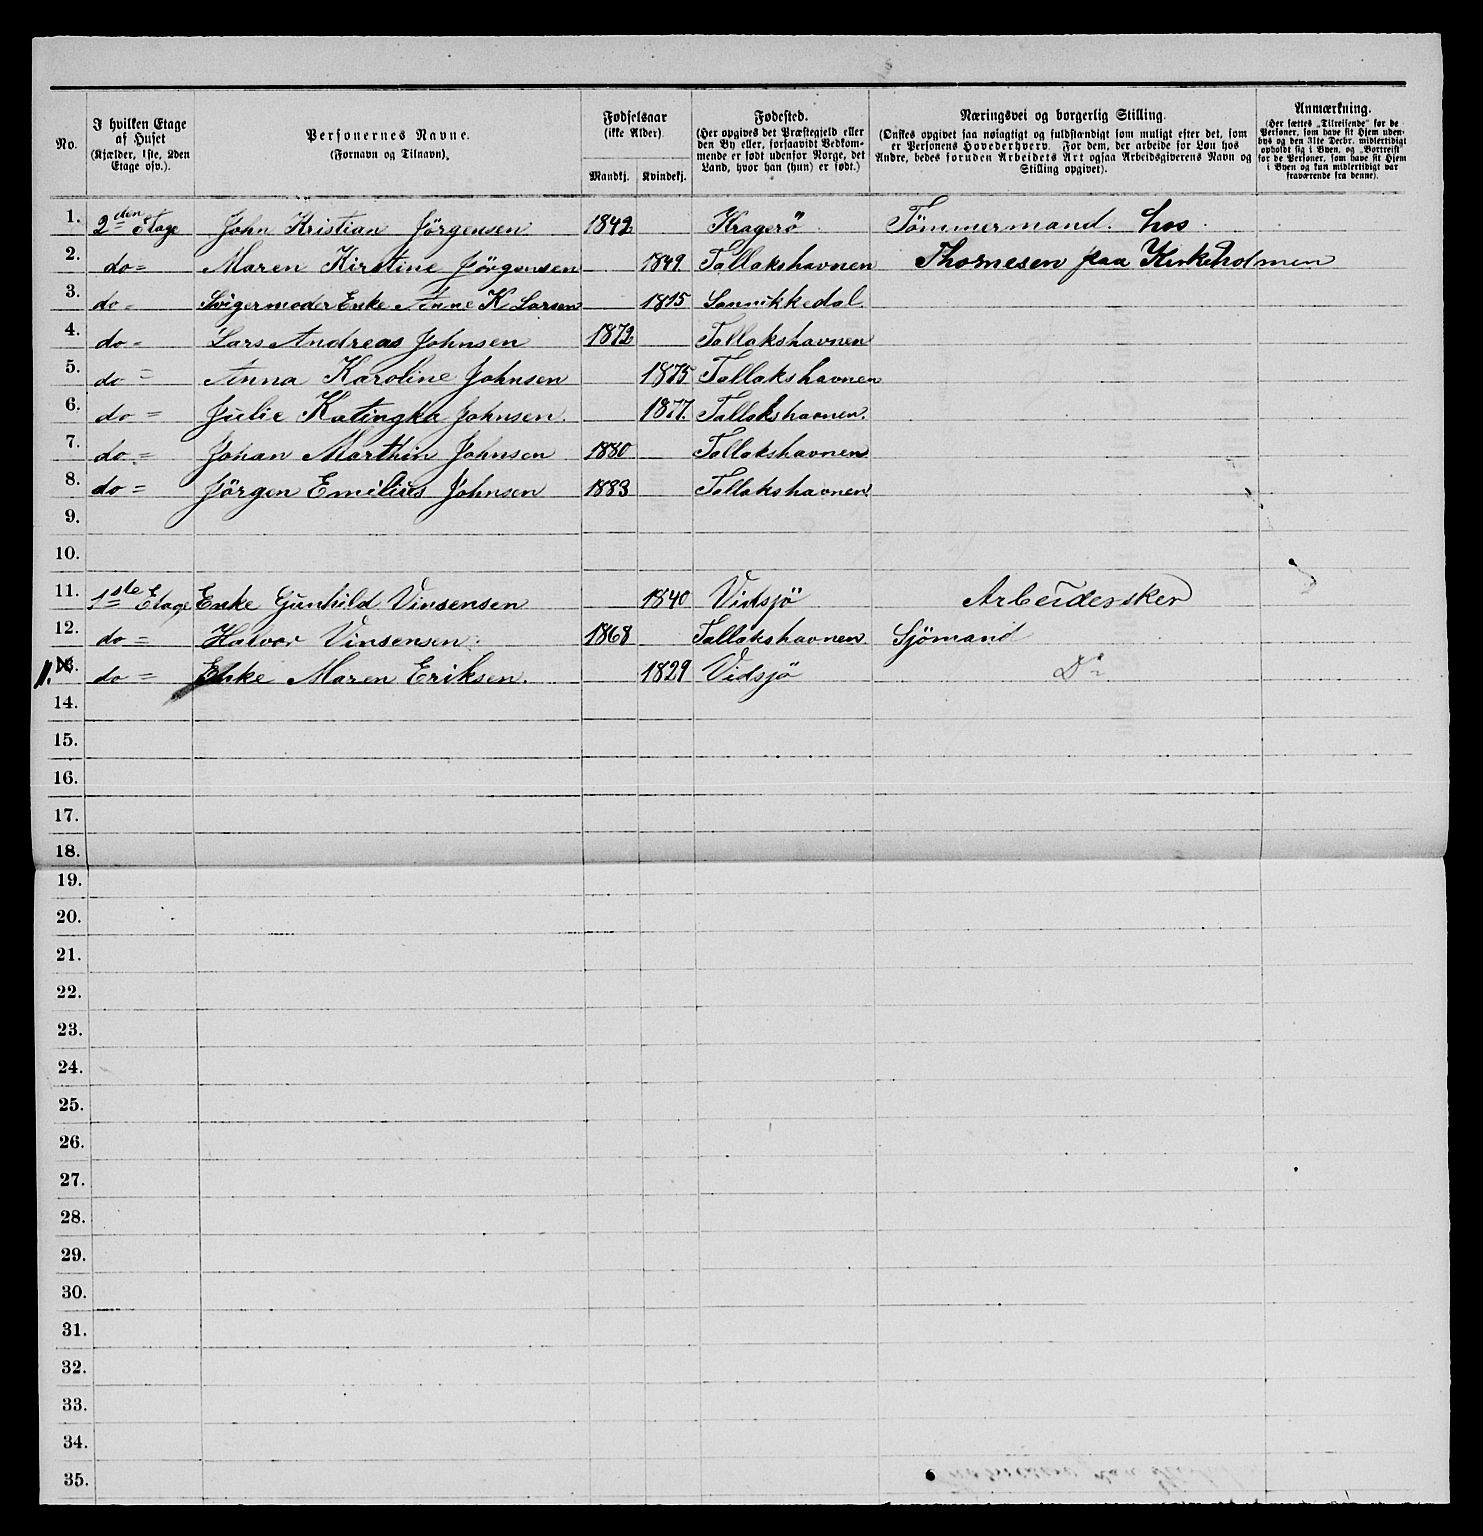 No.
I hvilken Etage
af Huset
(Kjælder, 1ste, 2den
Etage osv.).
Personernes Navne.
(Fornavn og Tilnavn).
Fødselsaar
(ikke Alder).
Mandkj.
Kvindekj.
Fødested.
(Her opgives det Præstegjeld eller
den By eller, forsaavidt Vedkom-
mende er født udenfor Norge, det
Land, hvor han (hun) er født.)
Næringsvei og borgerlig Stilling.
(Ønskes opgivet saa nøiagtigt og fuldstændigt som muligt efter det, som
er Personens Hovederhverv. For dem, der arbeide for Løn hos
Andre, bedes foruden Arbeidets Art ogsaa Arbeidsgiverens Navn og
Stilling opgivet).
Anmærkning.
(Her sættes „Tilreisende" for de
Personer, som have sit Hjem uden-
bys og den 31te Decbr. midlertidigt
opholdt sig i Byen, og „Bortreist"
for de Personer, som have sit Hjem
i Byen og kun midlertidigt var
fraværende fra denne).
1. 2den Etage John Kristian Jörgensen 1842 Kragerö Tömmermand. hos
2. do= Maren Kirstine Jörgensen 1849 Tallakshavnen Thomesen paa Kirkeholmen
3. do= Svigermoder Enke Anne K Larsen 1815 Sannikkedal
4. do= Lars Andreas Johnsen 1872 Tallakshavnen
5. do= Anna Karoline Johnsen 1875 Tallakshavnen
6. do= Julie Katingka Johnsen. 1877. Tallakshavnen.
7. do= Johan Marthin Johnsen 1880 Tallakshavnen
8. do= Jörgen Emilius Johnsen 1883 Tallakshavnen
9.
10.
11. 1ste Etage Enke Gunhild Vinsensen 1840 Vidsjö Arbeidersker
12. do= Halvor Vinsensen. 1868 Tallakshavnen Sjömand
11. do= Enke Maren Eriksen. 1829 Vidsjö Do
14.
15.
16.
17.
18.
19.
20.
21.
22.
23.
24.
25.
26.
27.
28.
29.
30.
31.
32.
33.
34.
35.